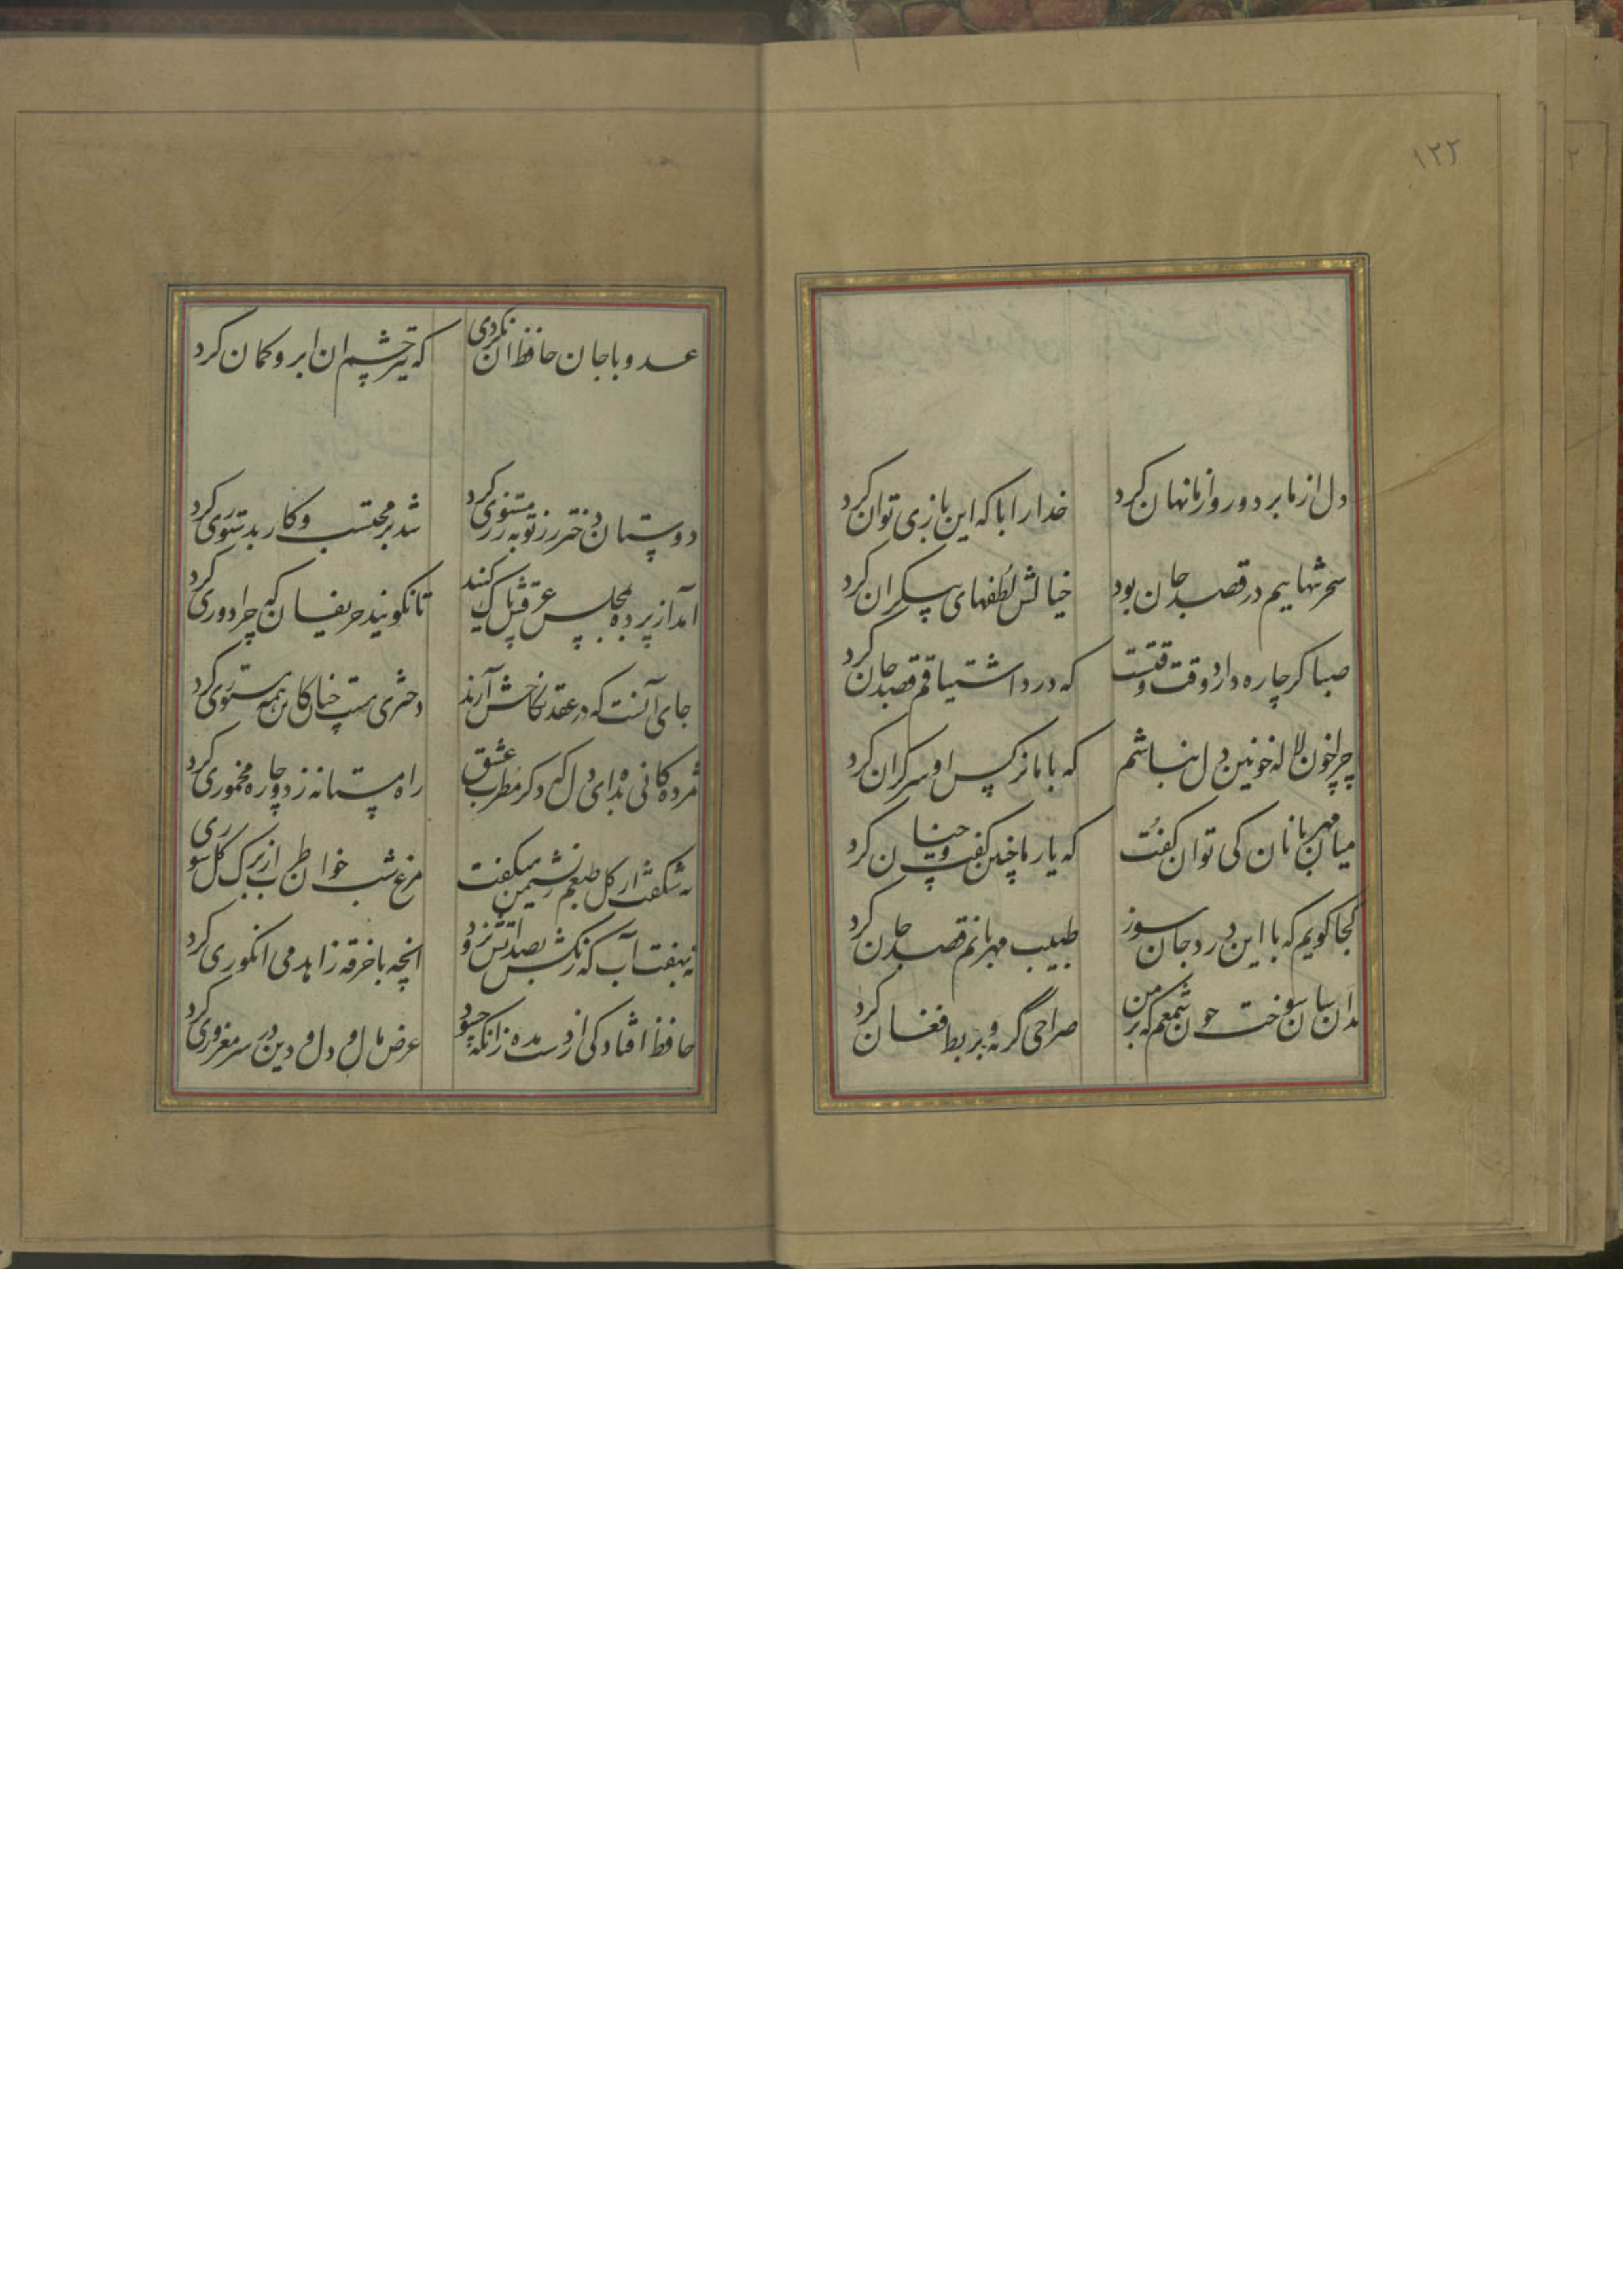 ۱۲۲
دل از ما برد و روز از ما نهان کرد خدا را با که این بازی توان کرد
سحر تنهاییم در قصد جان بود خیالش لطفهای بیکران کرد
صبا کر چاره داری وقت وقتست که درد اشتیاقم قصد جان کرد
چرا خون لاله خونین دل نباشم که با ما نرکس او سرکران کرد
میان مهربانان کی توان کفت که یار ما چنین کفت و چنان کرد
کجا کویم که با این درد جان سوز طبیب مهربانم قصد جان کرد
بدان سان سوخت چون شمعم که بر من صراحی گریه و بربط فغان کرد
عدو با جان حافظ ان نکردی که تیر چشم ان ابرو کمان کرد
دوستان دختر رز توبه ز مستوری کرد شد بر محتسب و کار بدستوری کرد
آمد از پرده بمجلس عرقش پاک کنید تا نکویند حریفان که چرا دوری کرد
جای آنست که در عقد نکاحش آرند دختری مست چنان کاین همه مستوری کرد
مژدکانی بده ای دل که دکر مطرب عشق راه مستانه زد و چاره مخموری کرد
نه شکفت ار کل طبعم ز نسیمش بشکفت مرغ شب خوان طرب از برک کل سوری کرد
نه بهفت آب که رنکش بصد آتش نرود آنچه با خرقه زاهد می انکوری کرد
حافظ افتادکی از دست مده زانکه حسود عرض و مال و دل و دین در سر مغروری کرد